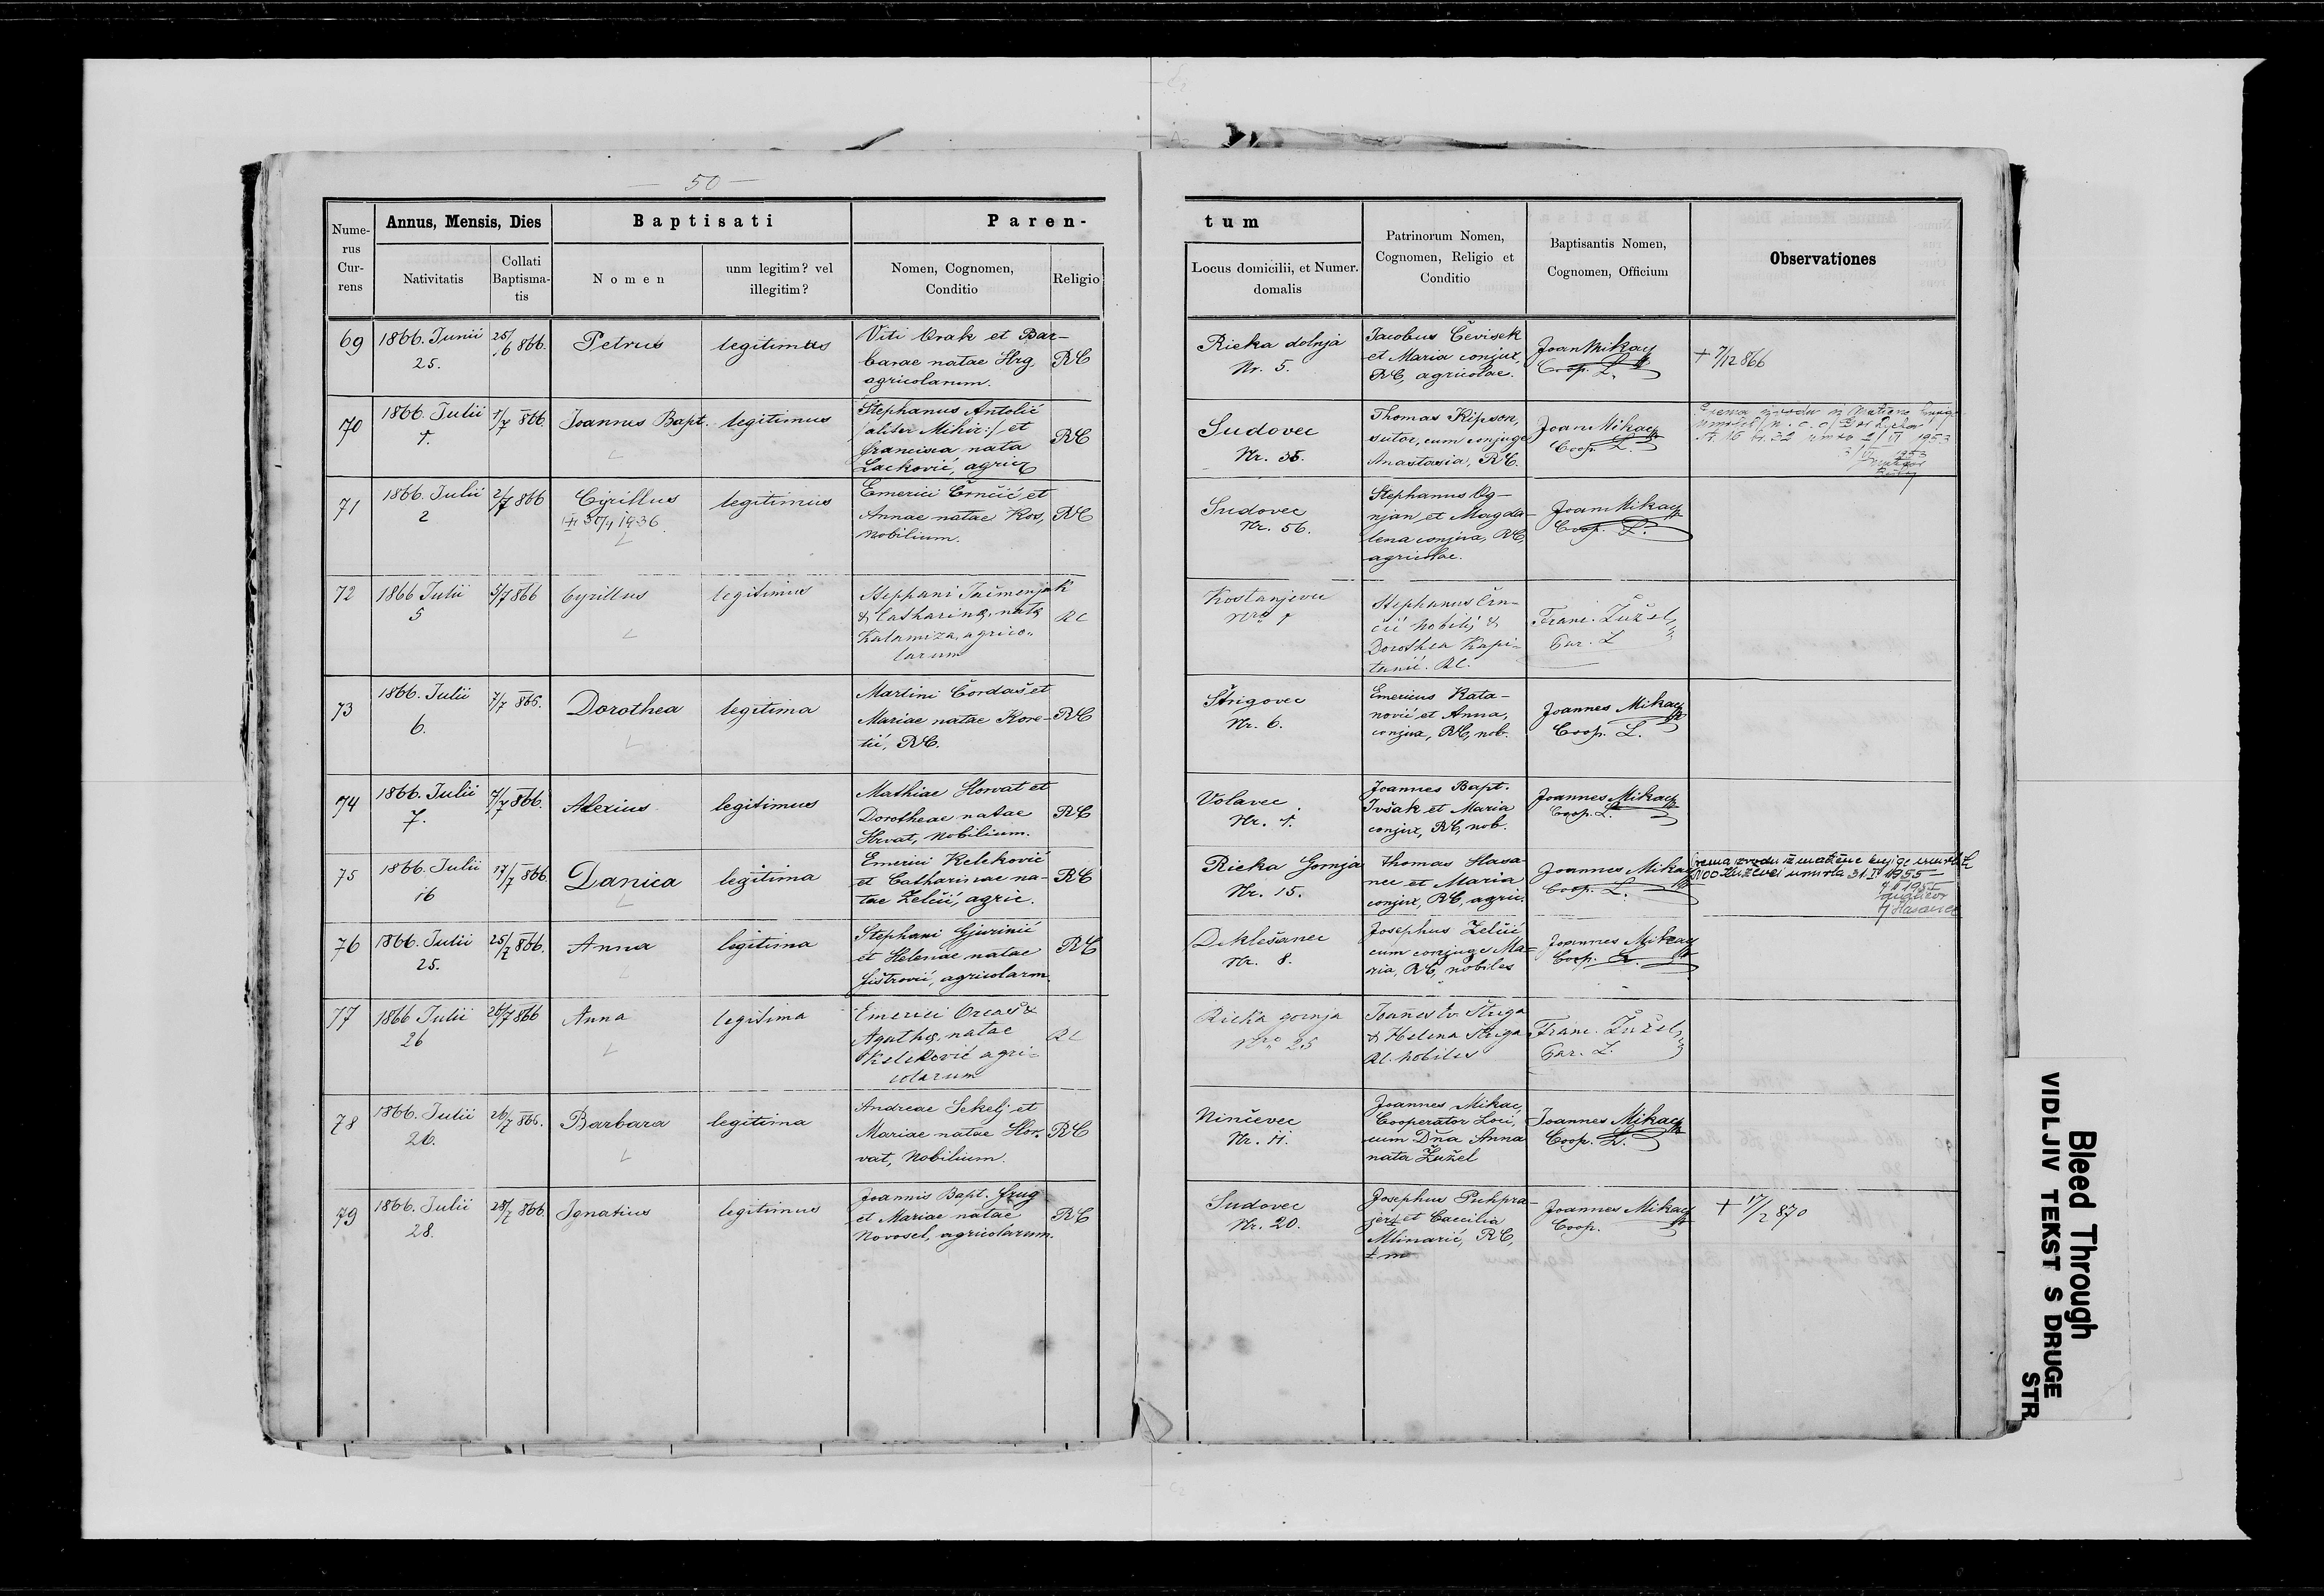 — 50 —
Nume-
rus
Cur-
rens
Annus, Mensis, Dies
Nativitatis
Collati
Baptisma-
tis
Baptisati
Nomen
unm legitim? vel
illegitim?
Paren-
Nomen, Cognomen,
Conditio
Religio
tum
Locus domicilii, et Numer.
domalis
Patrinorum Nomen,
Cognomen, Religio et
Conditio
Baptisantis Nomen,
Cognomen, Officium
Observationes
69
1866. Junii
25.
25/6 866.
Petrus
legitimus
Viti Orak et Bar-
barae natae Hrg
agricolarum.
RC
Rieka dolnja
Nr. 5.
Jacobus Čevisek
et Maria conjux,
RC, agricolae.
Joan Mikac
Coop. L.
+ 7/12 866
70
1866. Julii
1.
1/7 866.
Joannes Bapt.
legitimus
Stephanus Antolić
/aliter Mihir:/ et
Francisca nata
Lacković, agric
RC
Sudovec
Nr. 35.
Thomas Kipson,
sutor, cum conjuge
Anastasia, RC.
Joan Mikac
Coop. L.
71
1866. Julii
2
2/7 866
Cyrillus
+ 30/4 1936.
legitimus
Emerici Črnčić et
Annae natae Kos,
Nobilium.
RC
Sudovec
Nr. 56.
Stephanus Og-
njan et Magda-
lena conjux, RC,
agricolae.
Joan Mikac
Coop. L.
72
1866 Julii
5
5/7 866
Cyrillus
legitimus
Stephani Ječmenjak
& Catharinę, natę
Kalamiza, agrico-
larum
RC
Kostanjevec
Nro 1
Stephanus Črn-
čić Nobilis &
Dorothea Kapi-
tanić. RC.
Franc. Žužel
Par. L
73
1866. Julii
6.
7/7 866.
Dorothea
legitima
Martini Čordaš et
Mariae natae Kore-
tić, RC.
RC
Štrigovec
Nr. 6.
Emericus Kata-
nović et Anna,
conjux, RC, nob.
Joannes Mikac
Coop. L.
74
1866. Julii
7.
7/7 866.
Alexius
legitimus
Mathiae Horvat et
Dorotheae natae
Hrvat, Nobilium.
RC
Volavec
Nr. 1.
Joannes Bapt.
Ivšak et Maria
conjux, RC, nob.
Joannes Mikac
Coop. L.
75
1866. Julii
16
17/7 866.
Danica
legitima
Emerici Keleković
et Catharinae na-
tae Zelčić, agric.
RC
Rieka Gornja
Nr. 15.
Thomas Hasa-
nec et Maria
conjux, RC, agric.
Joannes Mikac
Coop. L.
umrla 31. 1955
Hasanec
76
1866. Julii
25.
25/7 866.
Anna
legitima
Stephani Gjurinić
et Helenae natae
Fištrović, agricolarm.
RC
Diklešanec
Nr. 8.
Josephus Zelčić
cum conjuge Ma-
ria, RC, nobiles
Joannes Mikac
Coop. L.
77
1866 Julii
26
26/7 866
Anna
legitima
Emerici Orcas &
Agathę, natae
Keleković agri-
colarum
RC
Rieka gornja
Nro 25
Joannes Štriga
& Helena Štriga
RC. Nobiles
Franc. Žužel
Par. L.
78
1866. Julii
26.
26/7 866.
Barbara
legitima
Andreae Sekelj et
Mariae natae Hor-
vat, Nobilium.
RC
Ninčevec
Nr. 11.
Joannes Mikac,
Cooperator Loci,
cum Dna Anna
nata Žužel
Joannes Mikac
Coop. L.
79
1866. Julii
28.
28/7 866.
Ignatius
legitimus
Joannis Bapt. Frug
et Mariae natae
Novosel, agricolarum.
RC
Sudovec
Nr. 20.
Josephus Puhpra-
jert et Caecilia
Mlinarić, RC,
Joannes Mikac
Coop.
+ 17/2 870
Bleed Through
VIDLJIV TEKST S DRUGE
STR